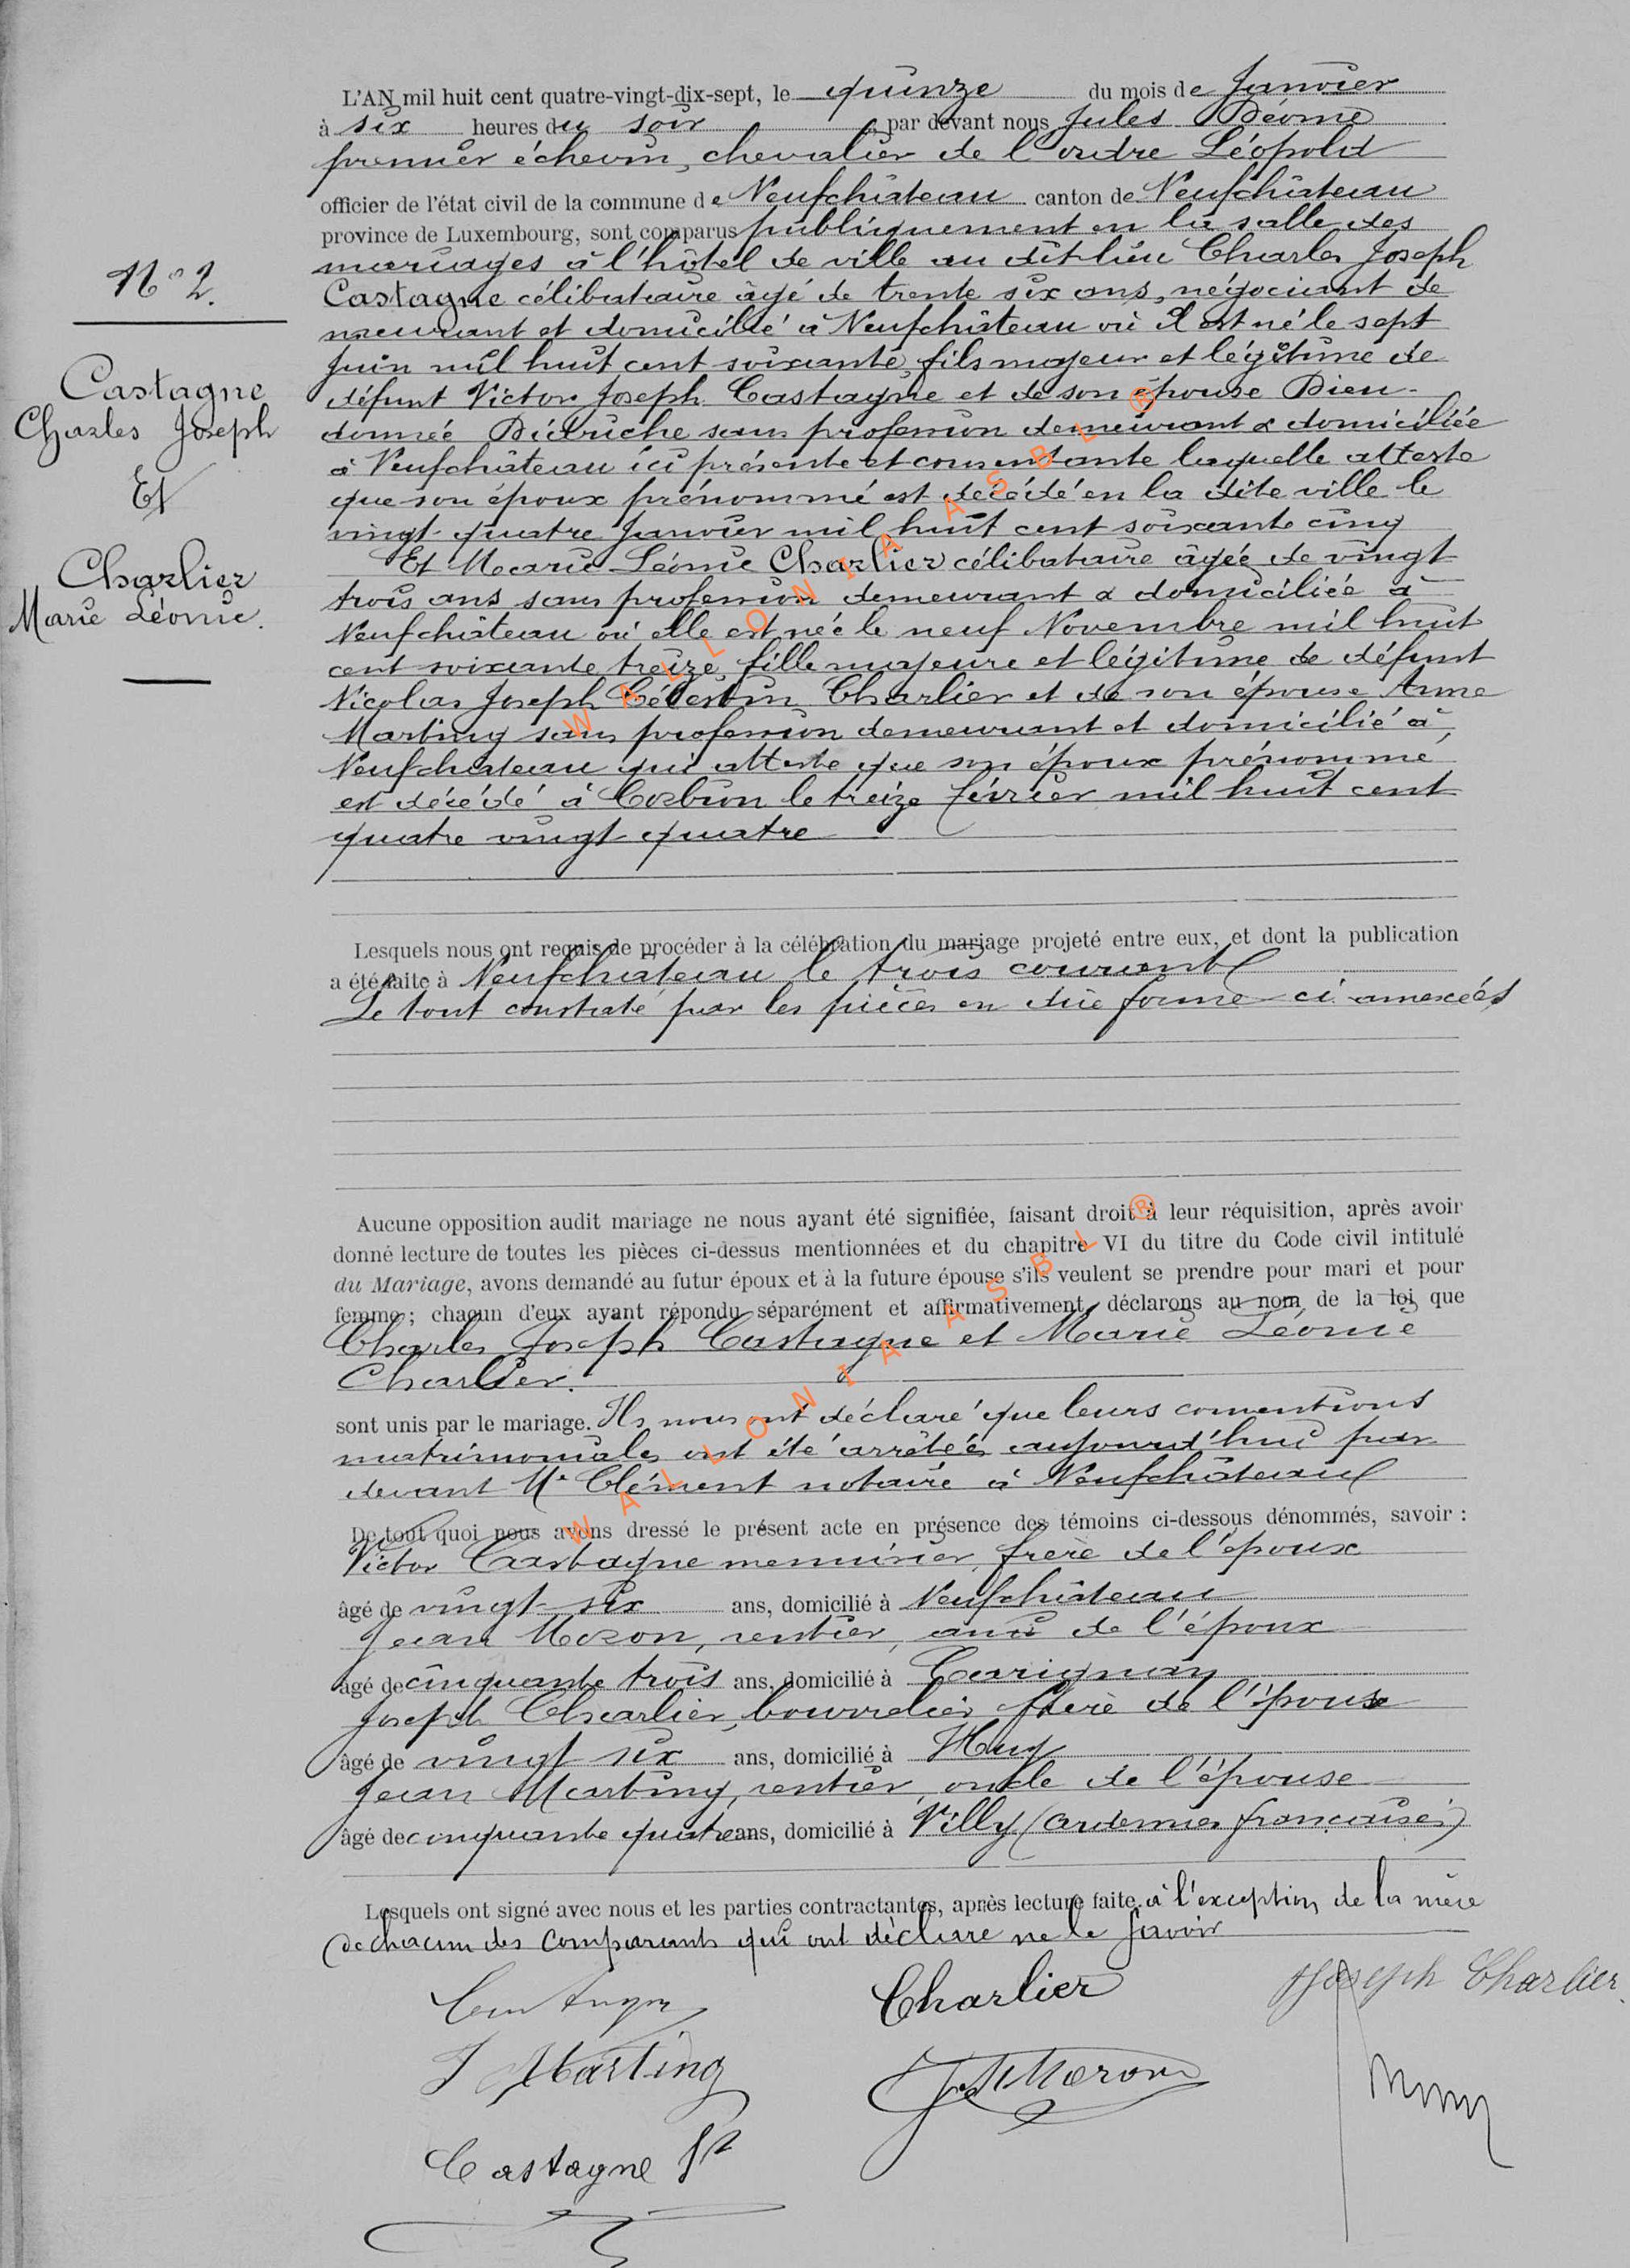 N° 2.
Castagne
Charles Joseph
Et
Charlier
Marie Léonie.
L'AN mil huit cent quatre-vingt-dix-sept, le quinze du mois de Janvier
à six heures du soir par devant nous Jules Déome
premier échevin, chevalier de l'ordre Léopold
officier de l'état civil de la commune de Neufchâteau canton de Neufchâteau
province de Luxembourg, sont comparus publiquement en la salle des
mariages à l'hôtel de ville au dit lieu Charles Joseph
Castagne célibataire âgé de trente six ans, négociant de
meurant et domicilié à Neufchâteau où il est né le sept
Juin mil huit cent soixante, fils majeur et légitime de
défunt Victor Joseph Castagne et de son épouse Dieu-
donnée sans profession demeurant & domiciliée
à Neufchâteau ici présente et consentante laquelle atteste
que son époux prénommé est décédé en la dite ville le
vingt-quatre Janvier mil huit cent soixante cinq
Et Marie Léonie Charlier célibataire âgée de vingt
trois ans sans profession demeurant & domiciliée à
Neufchâteau où elle est née le neuf Novembre mil huit
cent soixante treize, fille majeure et légitime de défunt
Nicolas Joseph Célestin Charlier et de son épouse Anne
Martiny sans profession demeurant et domicilié à
Neufchateau qui atteste que son époux prénommé
est décédé à Corbion le treize février mil huit cent
quatre vingt quatre
Lesquels nous ont requis de procéder à la célébration du mariage projeté entre eux, et dont la publication
a été faite à Neufchâteau le trois courant
Le tout constaté par les pièces en due forme ci-annexées
Aucune opposition audit mariage ne nous ayant été signifiée, faisant droit à leur réquisition, après avoir
donné lecture de toutes les pièces ci-dessus mentionnées et du chapitre VI du titre du Code civil intitulé
du Mariage, avons demandé au futur époux et à la future épouse s'ils veulent se prendre pour mari et pour
femme ; chacun d'eux ayant répondu séparément et affirmativement, déclarons au nom de la loi que
Charles Joseph Castagne et Marie Léonie
Charlier.
sont unis par le mariage. Ils nous ont déclaré que leurs conventions
matrimoniales ont été arrêtées aujourd'hui par
devant Me Clément notaire à Neufchâteau
De tout quoi nous avons dressé le présent acte en présence des témoins ci-dessous dénommés, savoir :
Victor Castagne menuisier, frère de l'époux
âgé de vingt-six ans, domicilié à Neufchâteau
Jean Mozon, rentier, ami de l'époux
âgé de cinquante trois ans, domicilié à Carignan
Joseph Charlier, bourrelier frère de l'épouse
âgé de vingt six ans, domicilié à Huy
Jean Martiny, rentier, oncle de l'épouse
âgé de cinquante quatre ans, domicilié à Villy (Ardennes françaises)
Lesquels ont signé avec nous et les parties contractantes, après lecture faite, à l'exception de la mère
de chacun des comparants qui ont déclaré ne le savoir
Charlier
Joseph Charlier
J Martiny
Castagne
WALLONIA ASBL ®
WALLONIA ASBL ®